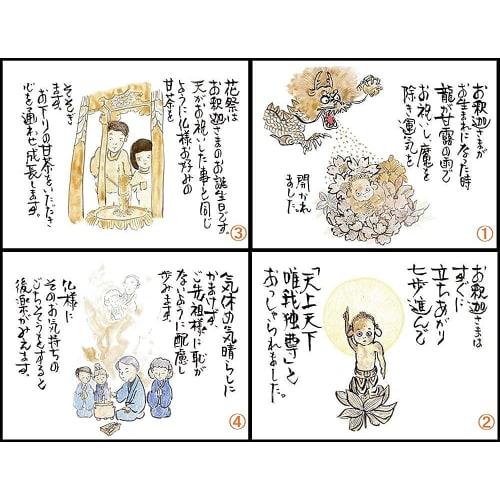 お釈迦さまが
お生まれになった時
龍が甘露の雨で
お祝いし、魔を
除き運気を
開かれ
ました。
①
お釈迦さまは
すぐに
立ちあがり
七歩進んで
「天上天下
唯我独尊」と
おっしゃられました。
②
花祭は
お釈迦さまのお誕生日です。
天がお祝いした事と同じ
ように仏様お好みの
甘茶を
そそぎ
ます。
お下りの甘茶をいただき
心を通わせ成長します。
③
気休めの気晴らしに
かまけず、
ご先祖様に恥が
ないように配慮し
歩みます。
仏様に
そのお気持ちの
ごちそうをすると
後楽がみえます。
④